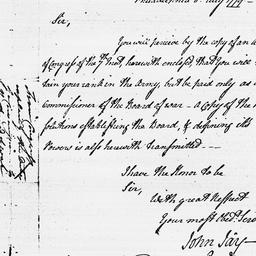 Philadelphia 8 July 1779
Sir,
You will perceive by the copy of an a
of Congress of the 7th Inst. herewith enclosed, that you will
tain your rank in the Army, but be paid only as a
Commissioner of the Board of war – a Copy of the
solutions establishing the Board, & defining its
Powers is also herewith transmitted —
I have the Honor to be
Sir,
With great Respect
Your most Obedt. Serv
John Jay